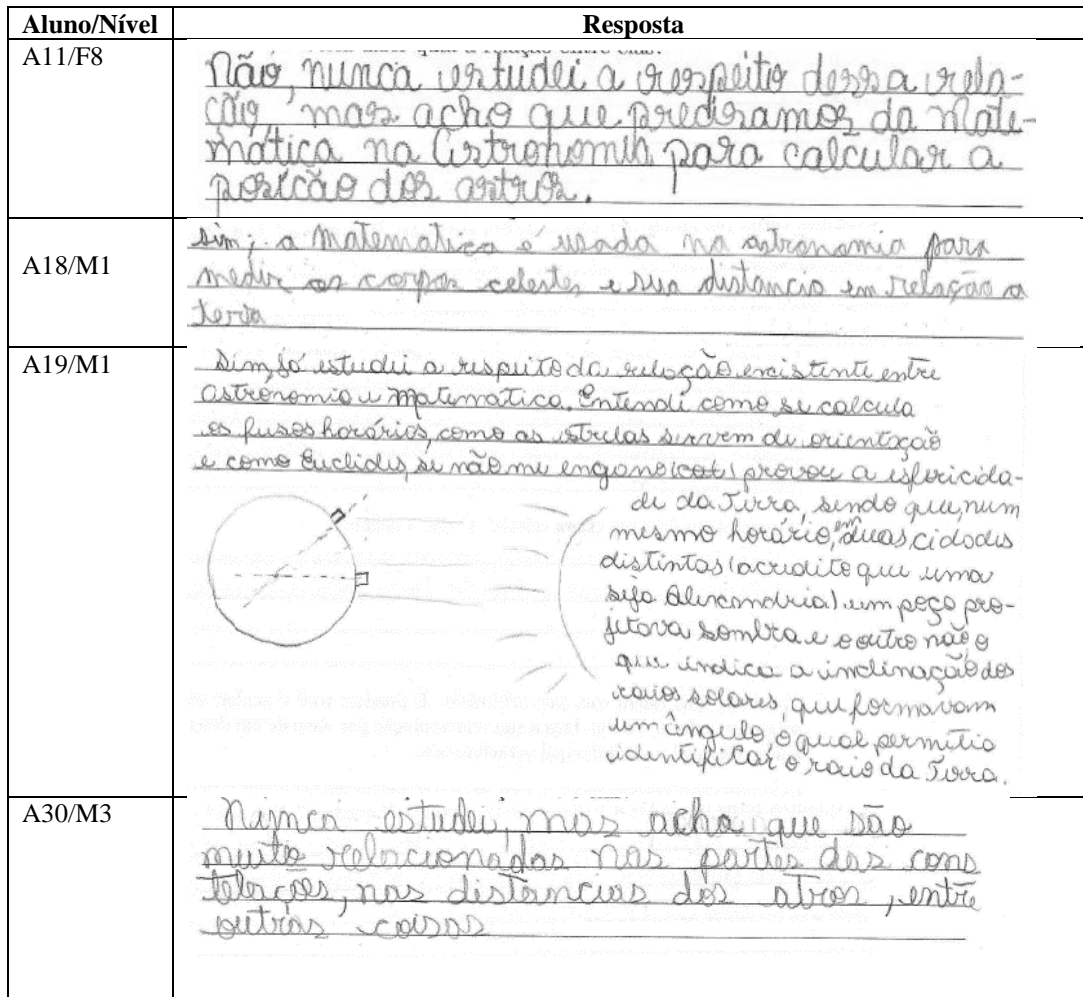 Aluno/Nível Resposta
A11/F8
Não, nunca estudei a respeito dessa rela-
ção, mas acho que precisamos da Mate-
mática na Astronomia para calcular a
posição dos astros.
A18/M1
sim; a matematica e usada na astronomia para
medir os corpos celestes e sua distancia em relação a
terra
A19/M1
Sim, só estudei a respeito da relação existente entre
astronomia e matematica. Entendi como se calcula
os fusos horários, como as estrelas servem de orientação
e como Euclides, se não me engano provou a esfericida-
de da Terra, sendo que, num
mesmo horário, em duas cidades
distintas (acredito que uma
seja Alexandria) um poço pro-
jetava sombra e outro não o
que indica a inclinação dos
raios solares, que formavam
um ângulo, o qual permitia
identificar o raio da Terra.
A30/M3
Nunca estudei, mas acho que são
muito relacionadas nas partes das cons
telações, nas distâncias dos atros, entre
outras coisas